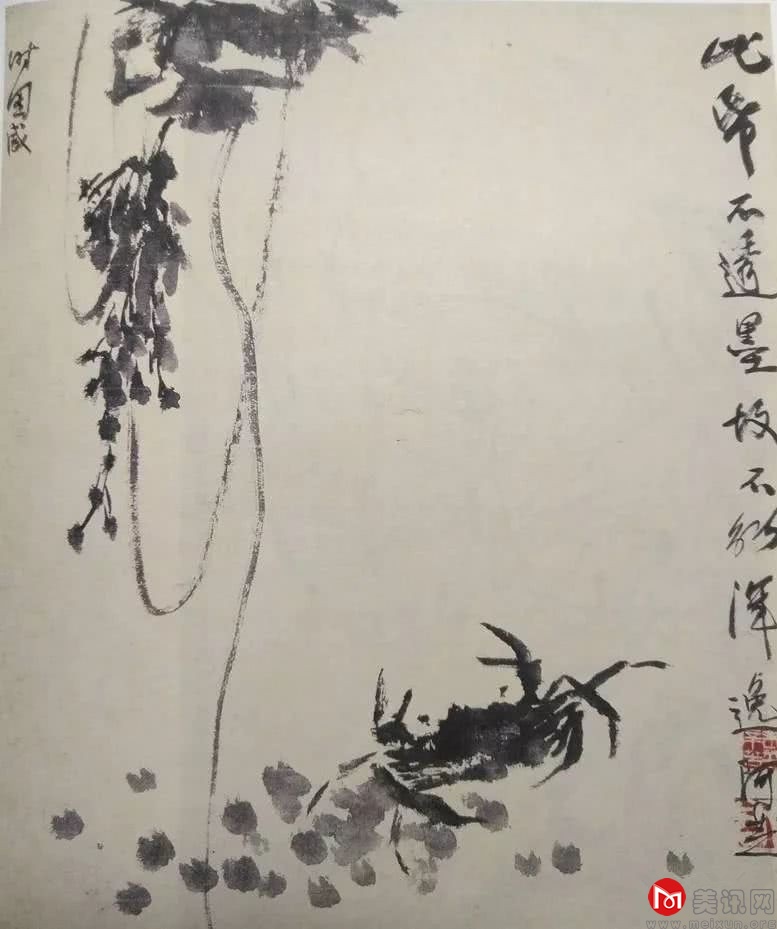 此帋不透墨故不能浑逸 阿芝
美讯网
www.meixun.org